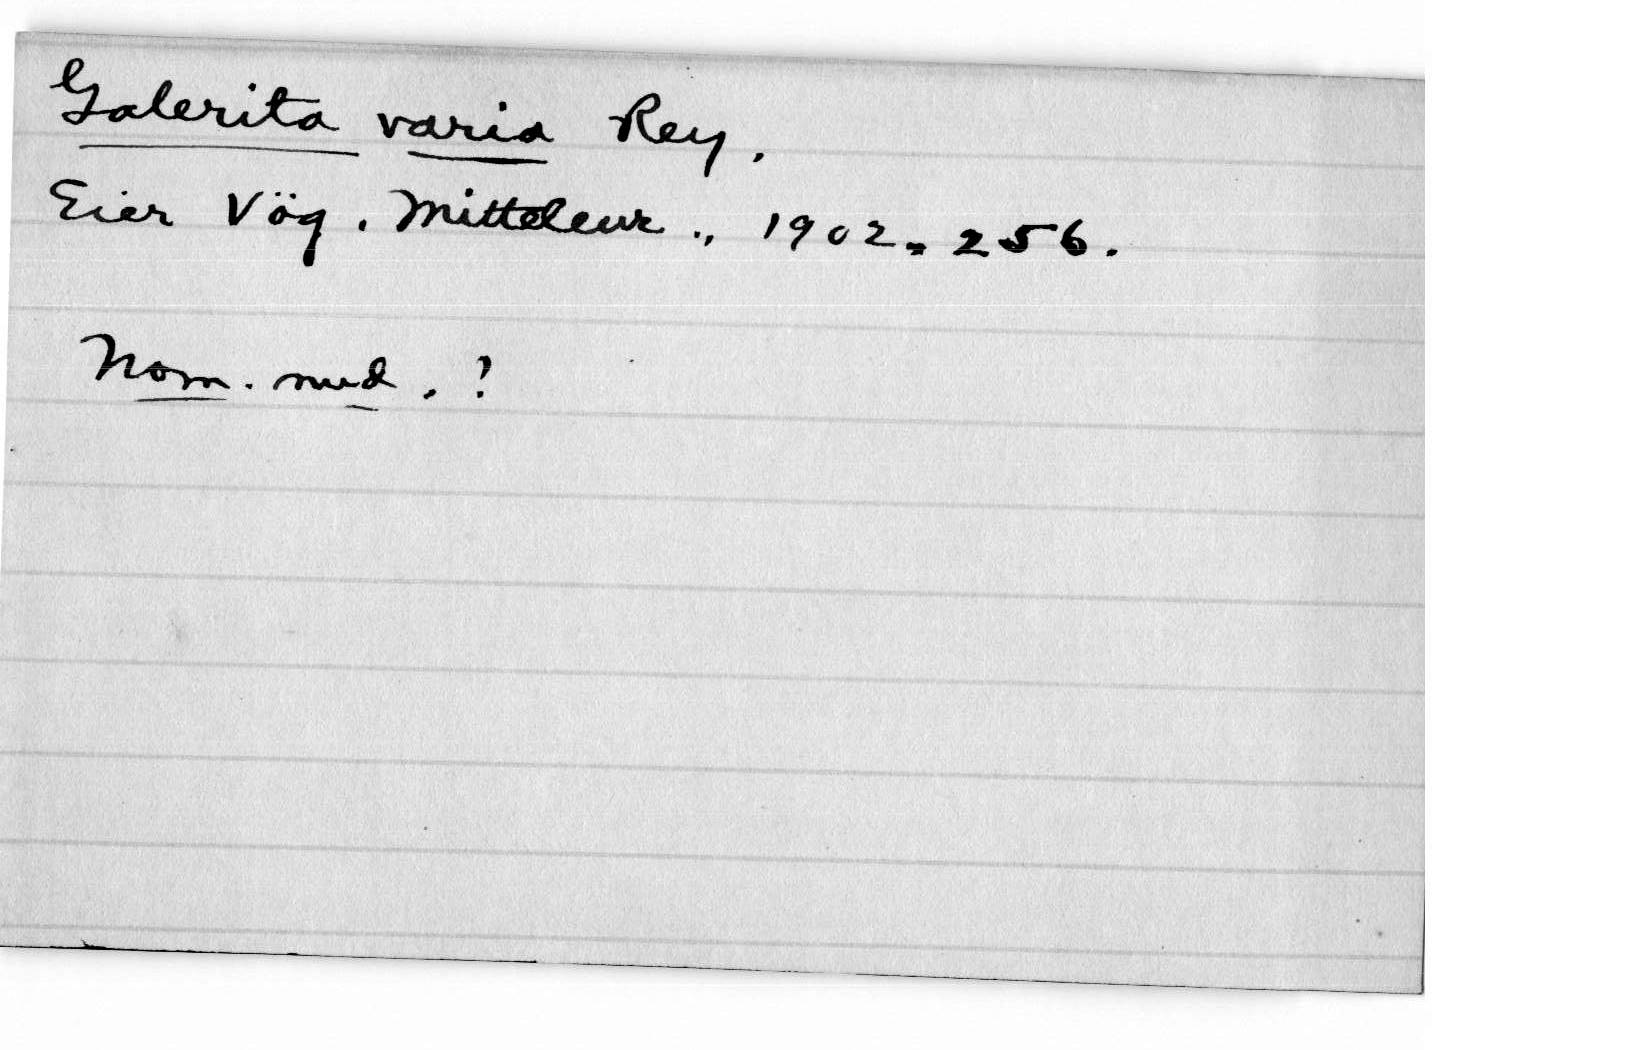 Galerita varia Rey,
Eier Vög. Mitteleur., 1902, 256.
Nom. nud. ?